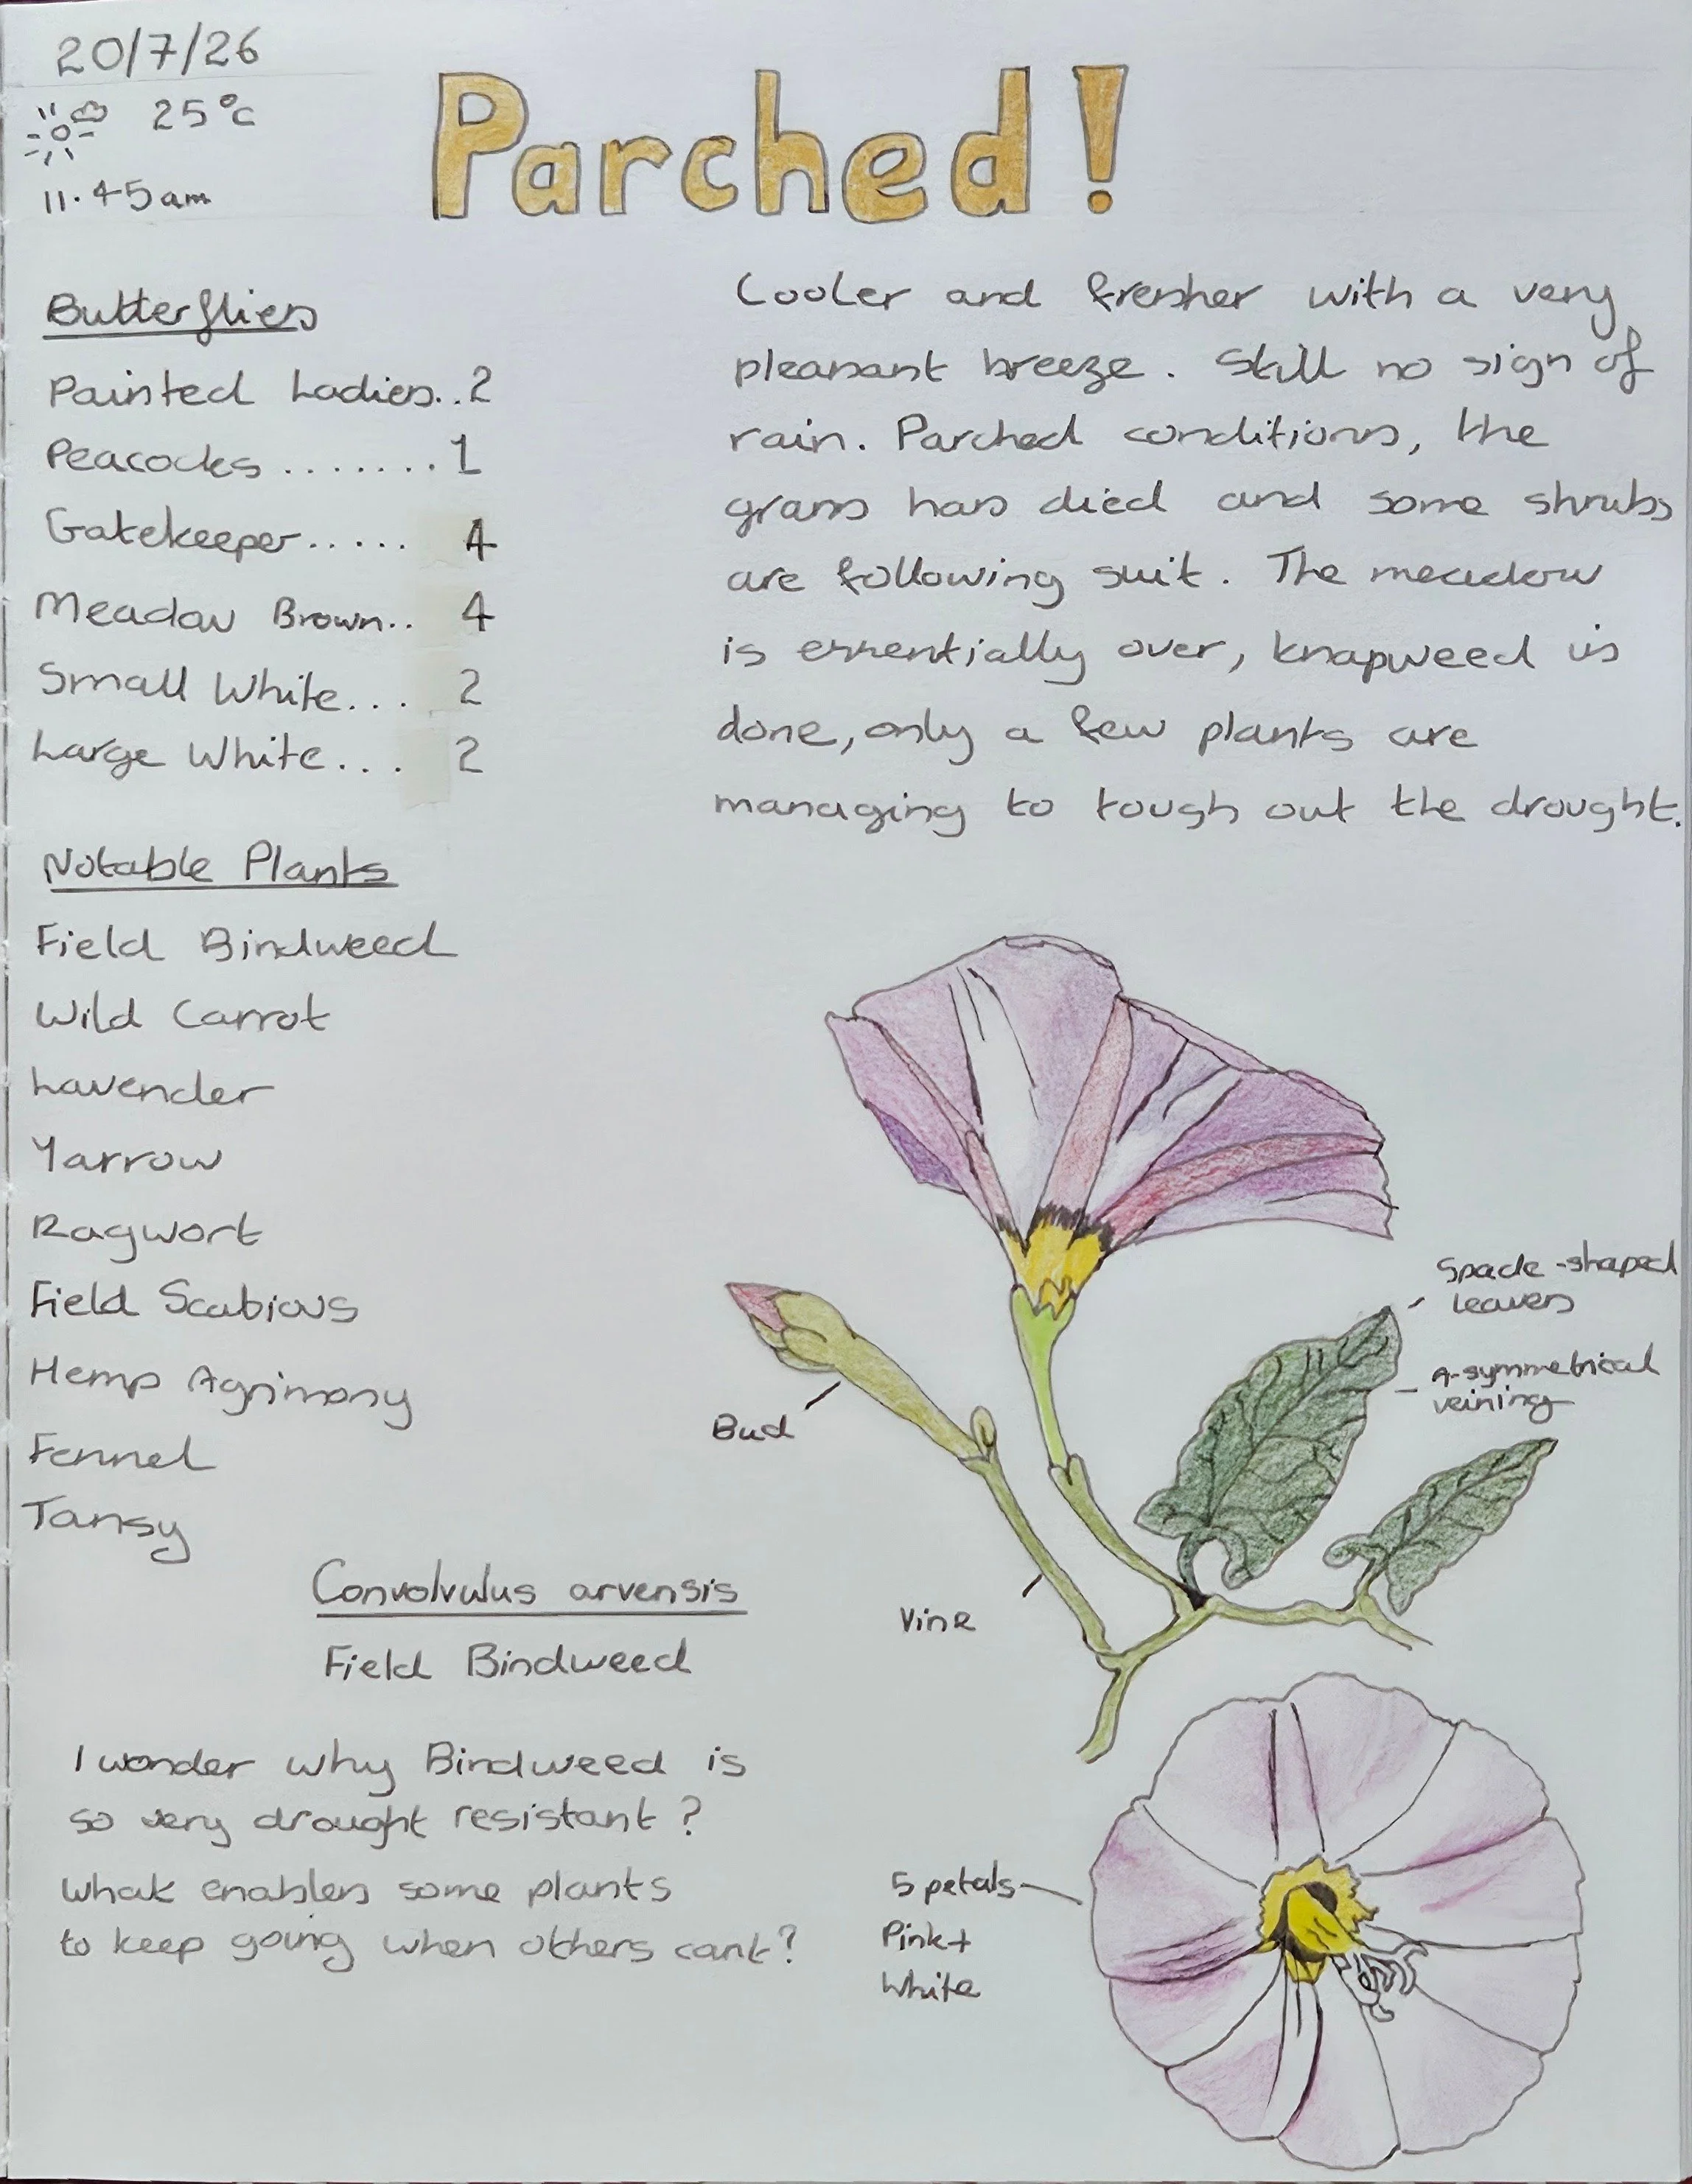 20/7/26
25°c
11.45am
Parched!
Butterflies
Painted Ladies..2
Peacocks.......1
Gatekeeper..... 4
Meadow Brown.. 4
Small White... 2
Large White... 2
Notable Plants
Field Bindweed
Wild Carrot
Lavender
Yarrow
Ragwort
Field Scabious
Hemp Agrimony
Fennel
Tansy
Cooler and fresher with a very
pleasant breeze. Still no sign of
rain. Parched conditions, the
grass has died and some shrubs
are following suit. The meadow
is essentially over, knapweed is
done, only a few plants are
managing to tough out the drought.
Spade-shaped
leaves
A-symmetrical
veining
Bud
Vine
Convolvulus arvensis
Field Bindweed
I wonder why Bindweed is
so very drought resistant?
What enables some plants
to keep going when others cant?
5 petals
Pink+
White